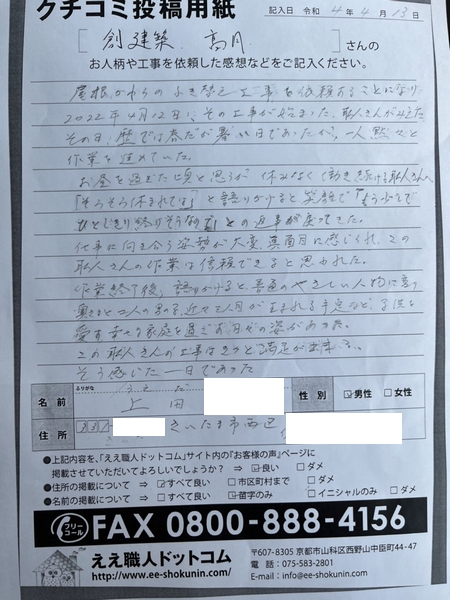 クチコミ投稿用紙
記入日 令和 4年 4月 13日
[ 創建築 高月 ]さんの
お人柄や工事を依頼した感想などをご記入ください。
屋根がわらのふき替え工事を依頼することになり
2022年4月12日、その工事が始まった。職人さんが
その日、暦では春だが暑い日であったが、一人黙々と
作業を進めていた。
お昼を過ぎた頃と思うが休みなく働き続ける職人さんへ
「そろそろ休まれては」と語りかけると笑顔で「もう少しで
ひとくぎり終りそうなので」との返事が戻ってきた。
仕事に向き合う姿勢が大変、真面目に感じられ、この
職人さんの作業は信頼できると思われた。
作業終了後、語りかけると、普通のやさしい人物に
奥さまと二人の男の子、近々三人目が生まれる予定など、子供を
愛す幸せな家庭を過ごす日々の姿があった。
この職人さんの工事はきっと満足が出来る、
そう感じた一日であった
ふりがな うえだ
名前 上田 性別 ☑男性 □女性
住所 さいたま市西区
●上記内容を、「ええ職人ドットコム」サイト内の『お客様の声』ページに
掲載させていただいてよろしいでしょうか? ⇒ ☑良い □ダメ
●住所の掲載について ⇒ ☑すべて良い □市区町村まで □ダメ
●名前の掲載について ⇒ □すべて良い ☑苗字のみ □イニシャルのみ □ダメ
フリーコール FAX 0800-888-4156
ええ職人ドットコム
http://www.ee-shokunin.com/
〒607-8305 京都市山科区西野山中臣町44-47
電話:075-583-2801
E-mail:info@ee-shokunin.com